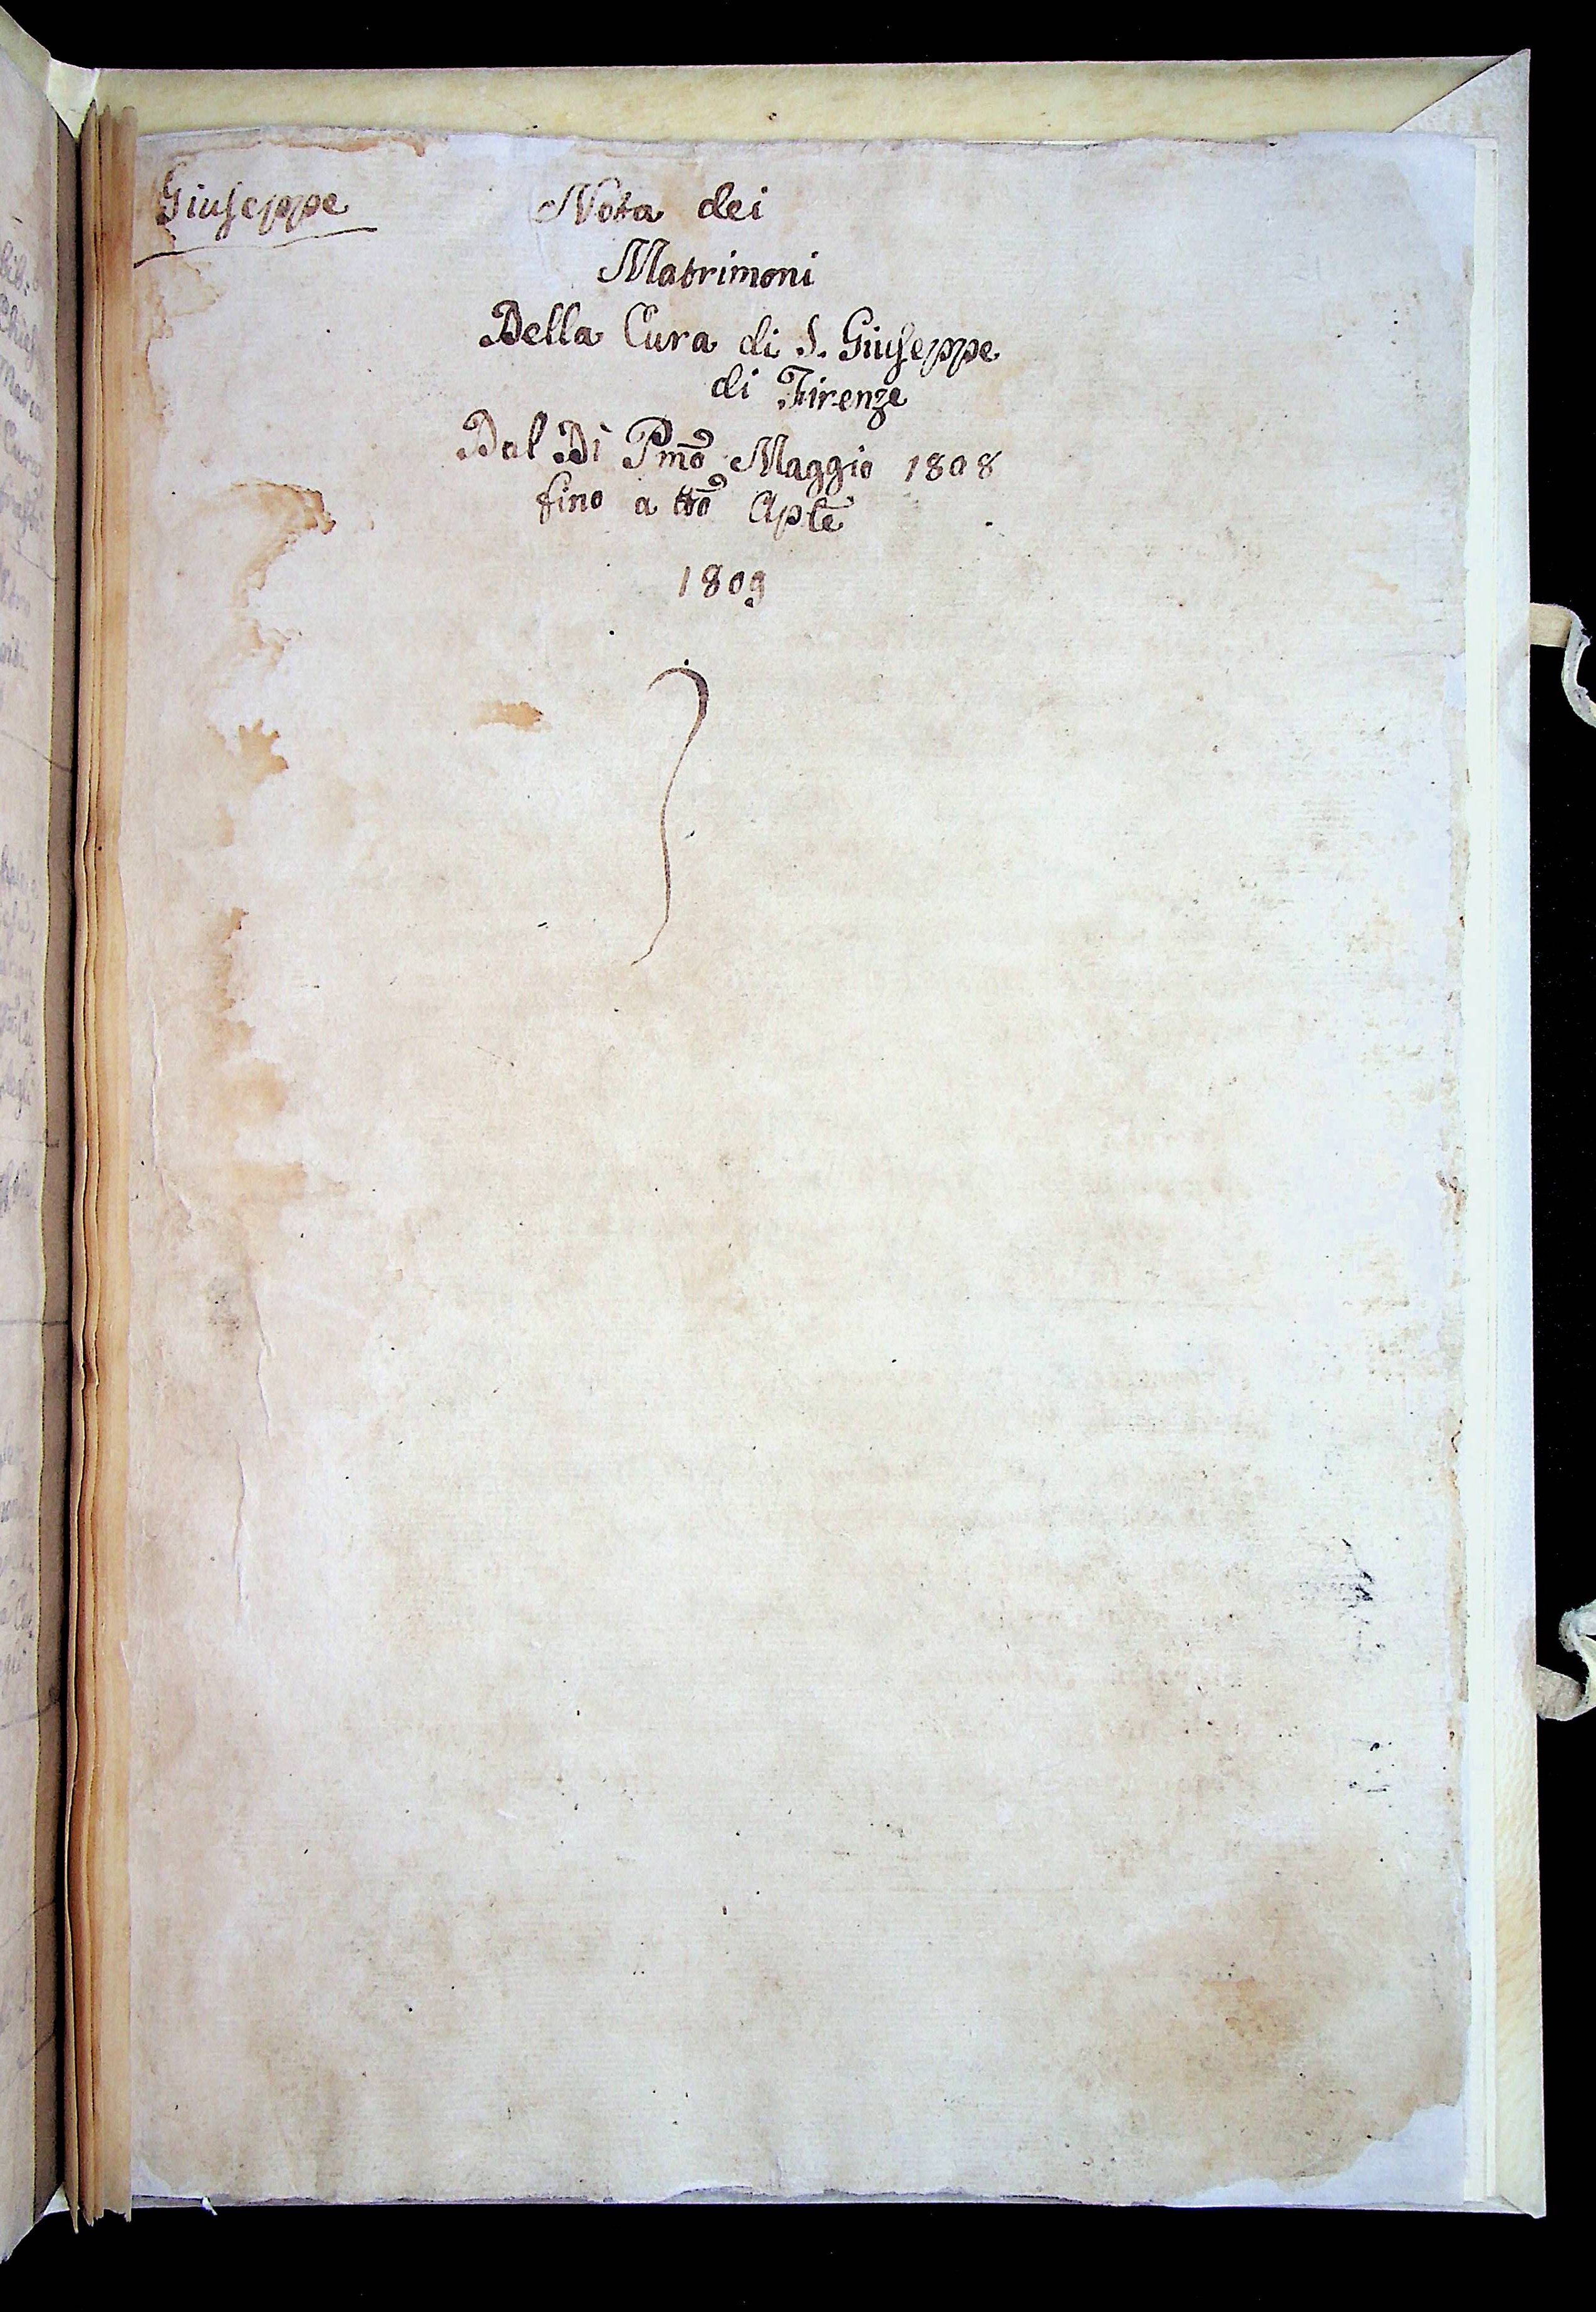 Giuseppe
Nota dei
Matrimoni
Della Cura di S. Giuseppe
di Firenze
Dal Dì Pm̃o Maggio 1808
fino a tt̃o Apl̃e
1809